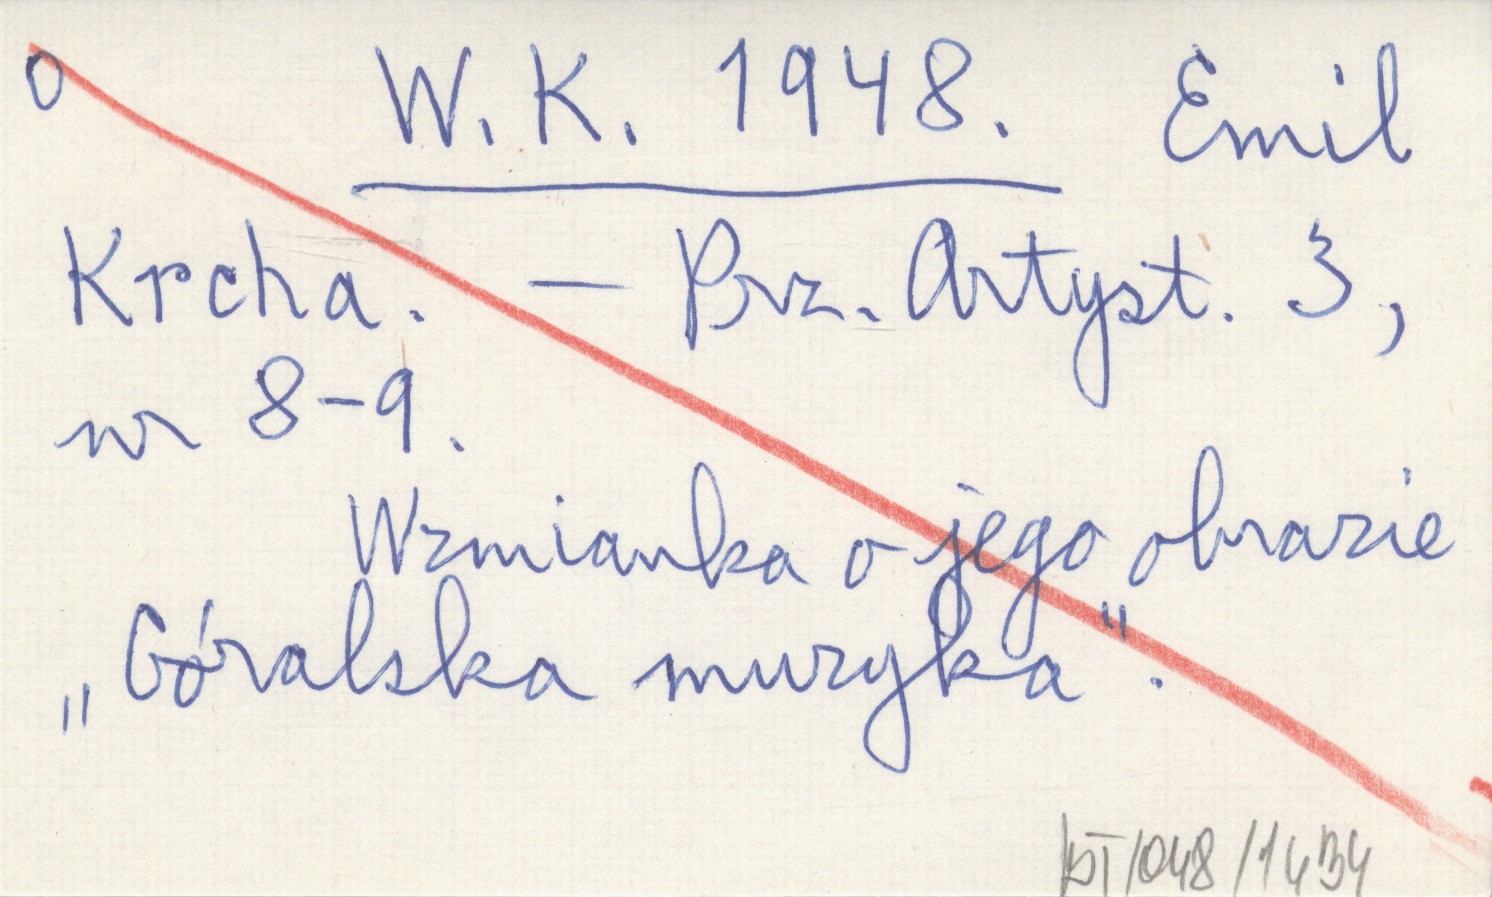 o W. K. 1948. Emil
Krcha. — Prz. Artyst. 3,
nr 8-9.
Wzmianka o jego obrazie
„Góralska muzyka".
/048/1434